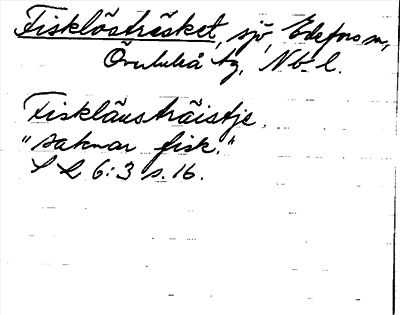 Fisklösträsket, sjö, Edefors sn,
Överluleå tg, Nb. l.
Fiskläusträistje
"saknar fisk."
S L 6:3 s. 16.